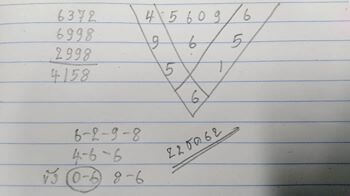 6372
6998
2998
4158
4 5 6 0 9 6
9 6 5
5 1
6
6-2-9-8
4-6-6
0-6 8-6